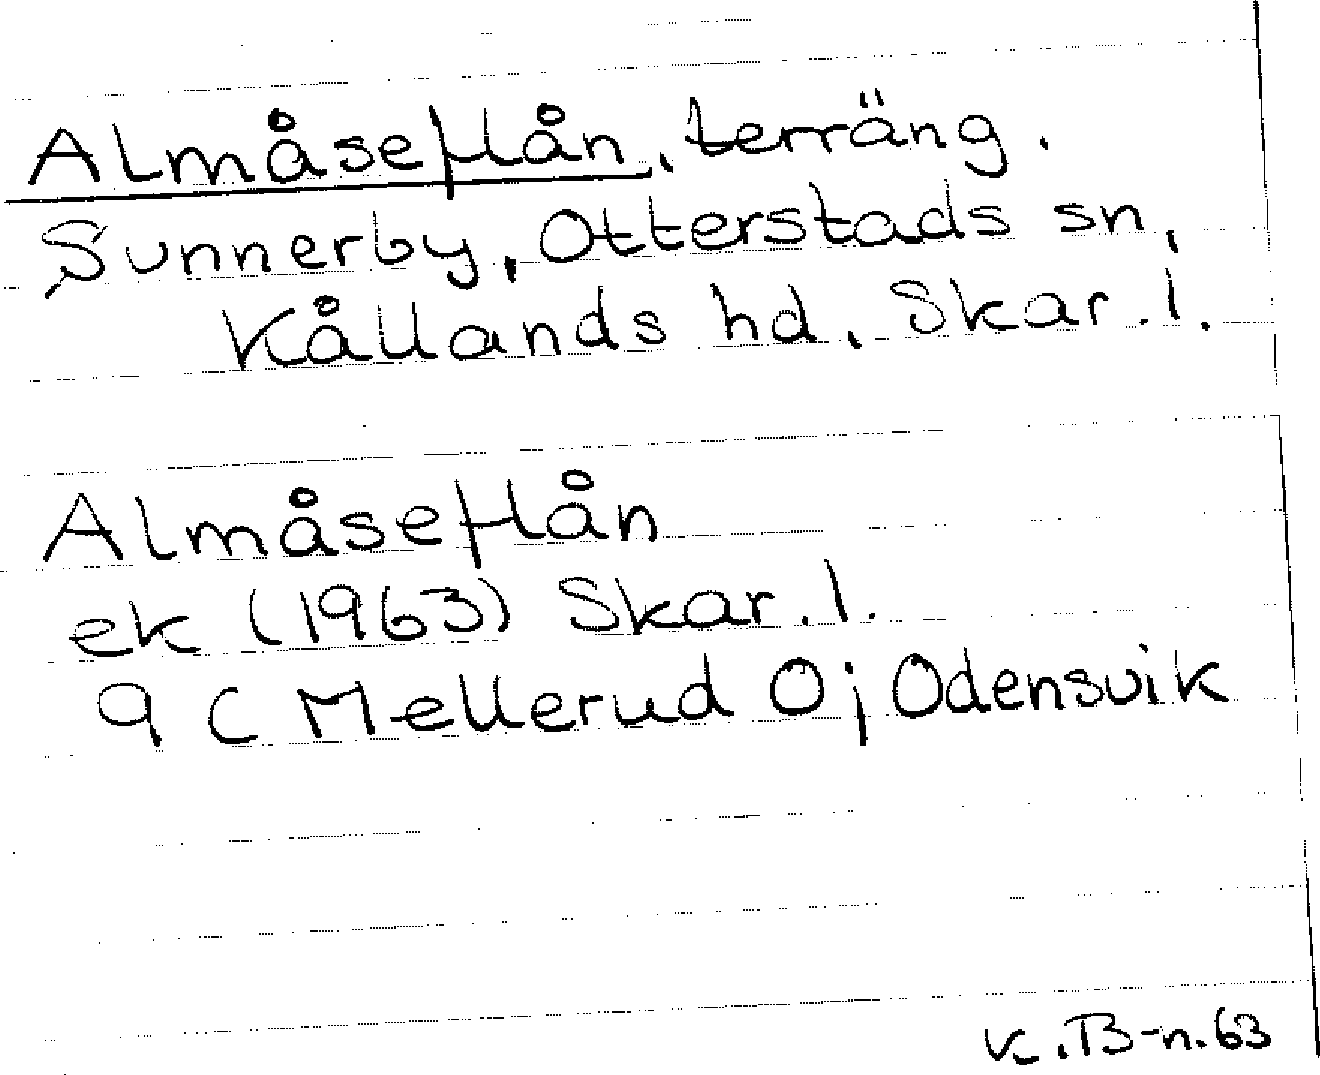 Almåseflån, terräng.
Sunnerby, Otterstads sn,
Kållands hd, Skar.l.
Almåseflån
ek (1963) Skar.l.
9 C Mellerud Oj Odensvik
K.B-n.63